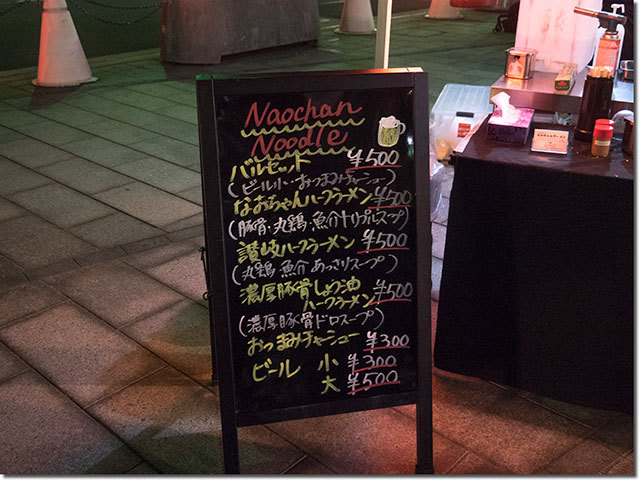 Naochan
Noodle
バルセット ¥500
(ビール小・おつまみチャーシュー)
なおちゃんハーフラーメン ¥500
(豚骨・丸鶏・魚介トリプルスープ)
讃岐ハーフラーメン ¥500
(丸鶏・魚介 あっさりスープ)
濃厚豚骨しょう油
ハーフラーメン ¥500
(濃厚豚骨ドロスープ)
おつまみチャーシュー ¥300
ビール 小 ¥300
大 ¥500